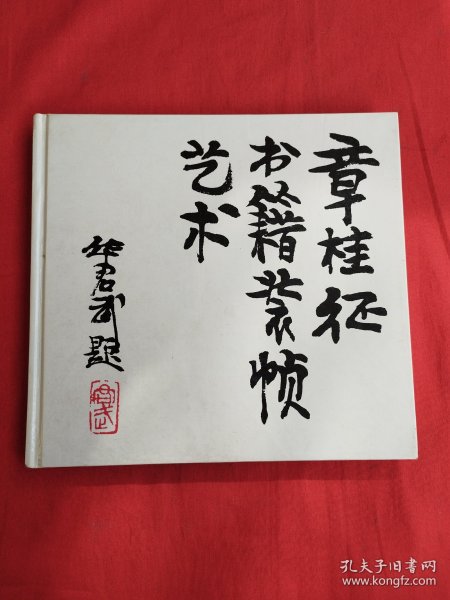 章桂征
书籍装帧
艺术
华君武题
君武
孔夫子旧书网
www.kongfz.com